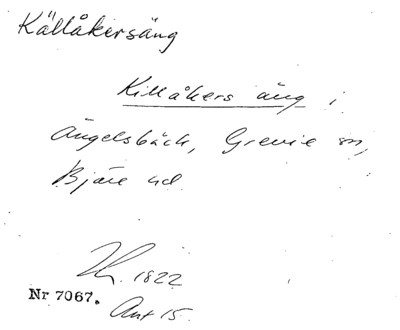 Källåkersäng
Killåkers äng i
Ängelsbäck, Grevie sn,
Bjäre hd
1822
Nr 7067.
Ant 15.